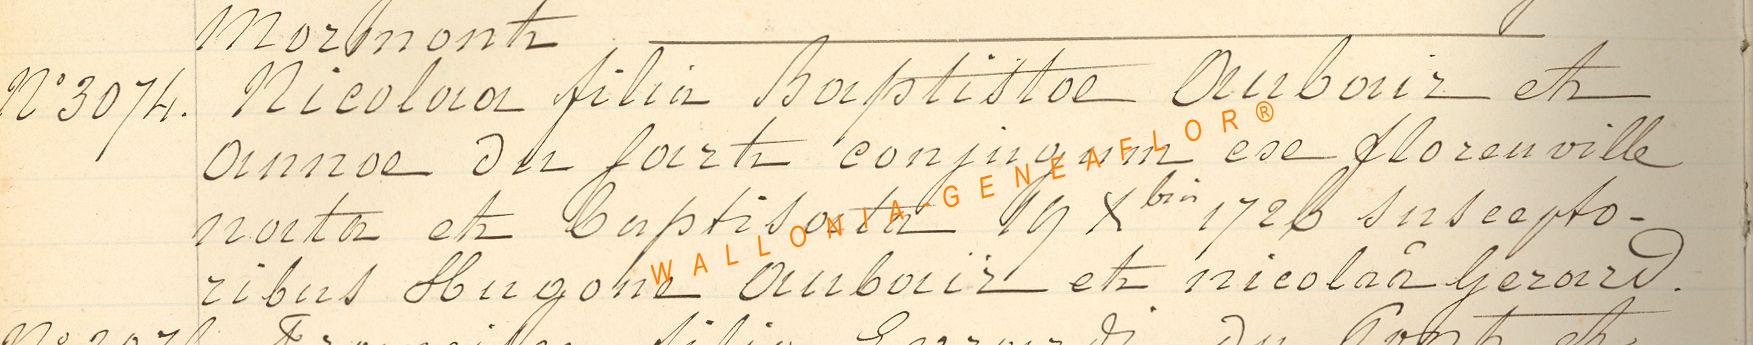 Mormont
N° 3074. Nicolaa filia Baptistae Aubair et
annae du fart conjugum ex florenville
nata et baptisata 19 Xbris 1726 suscepto-
ribus Hugone Aubair et nicolaâ Gerard.
WALLONIA-GENEAFLOR®
filia Gerardi du Pont et